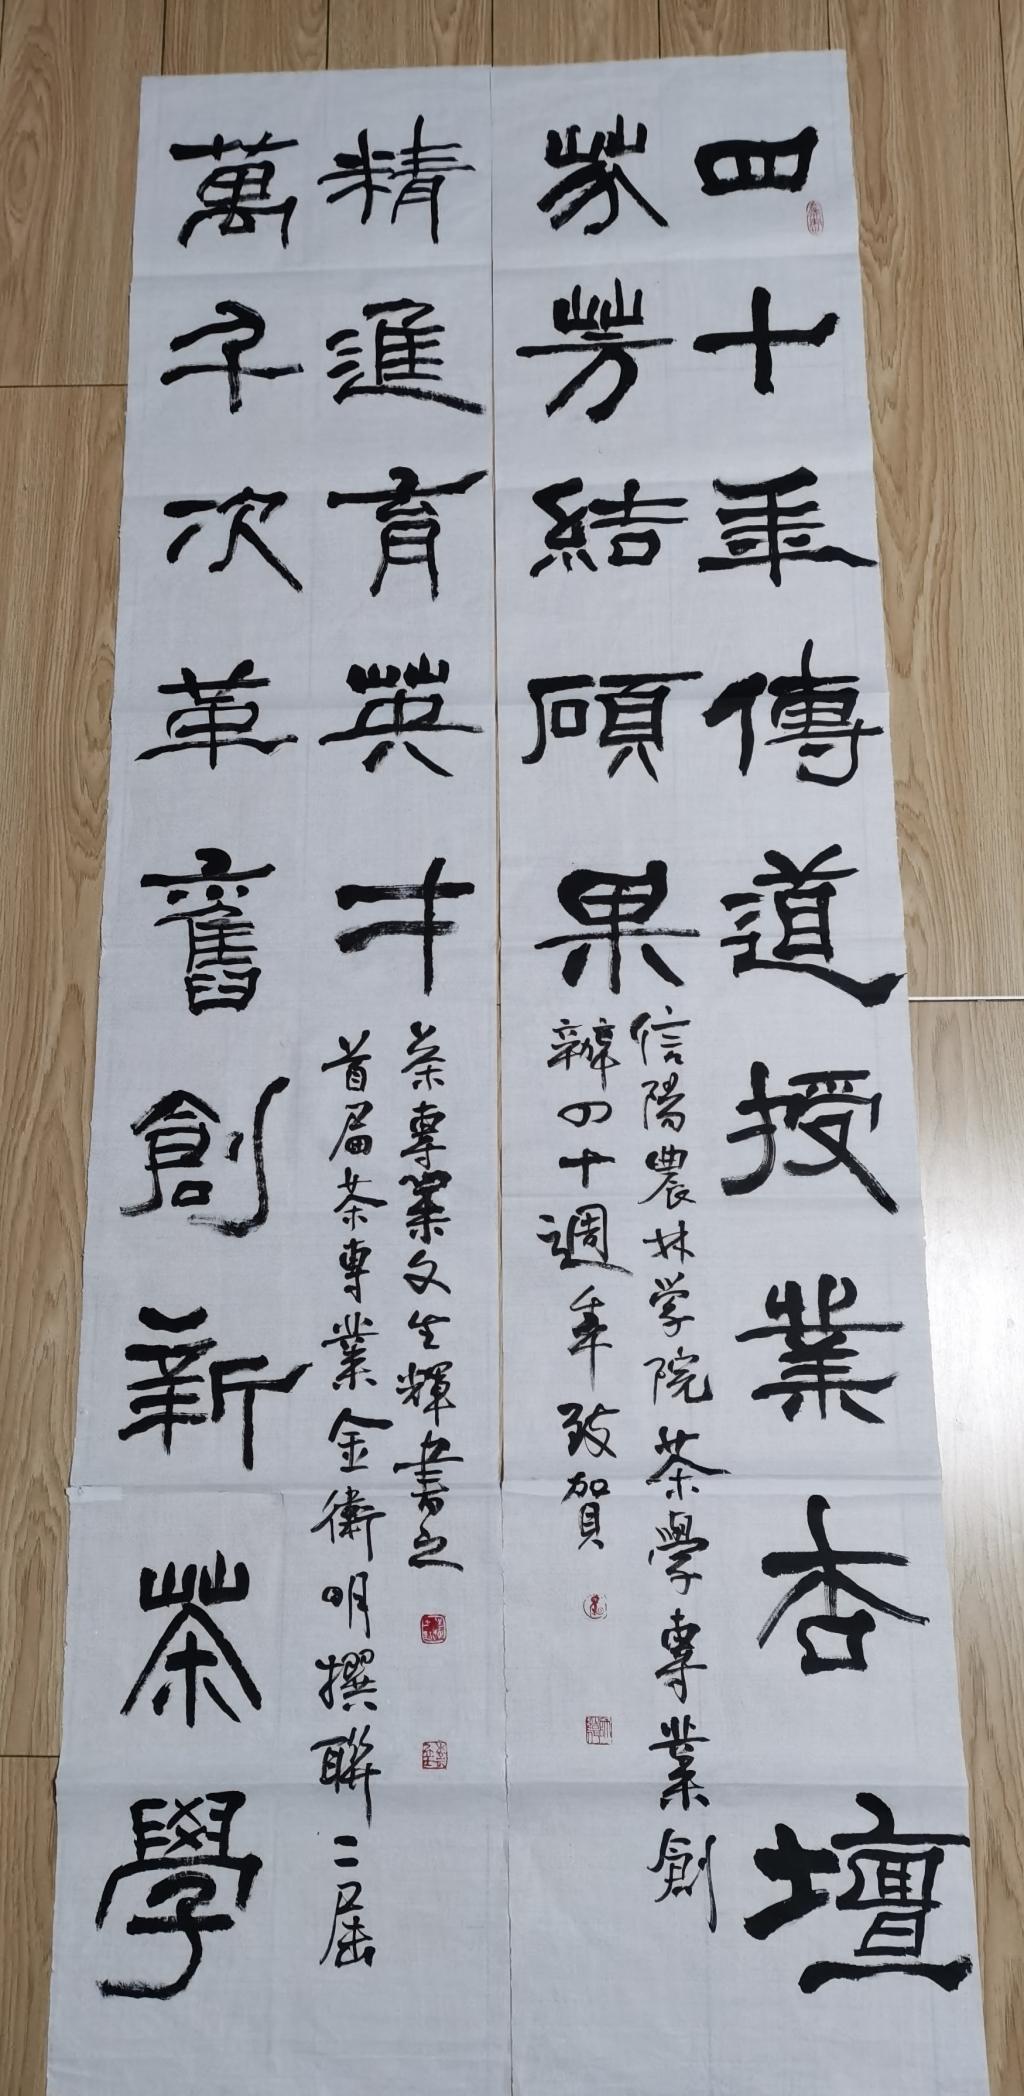 四十年傳道授業杏壇
芬芳結碩果
信陽農林学院茶學專業創
辦四十週年致賀
萬千次革舊創新茶學
精進育英才
首届茶專業金衛明撰聯二届
茶專業文生輝書之